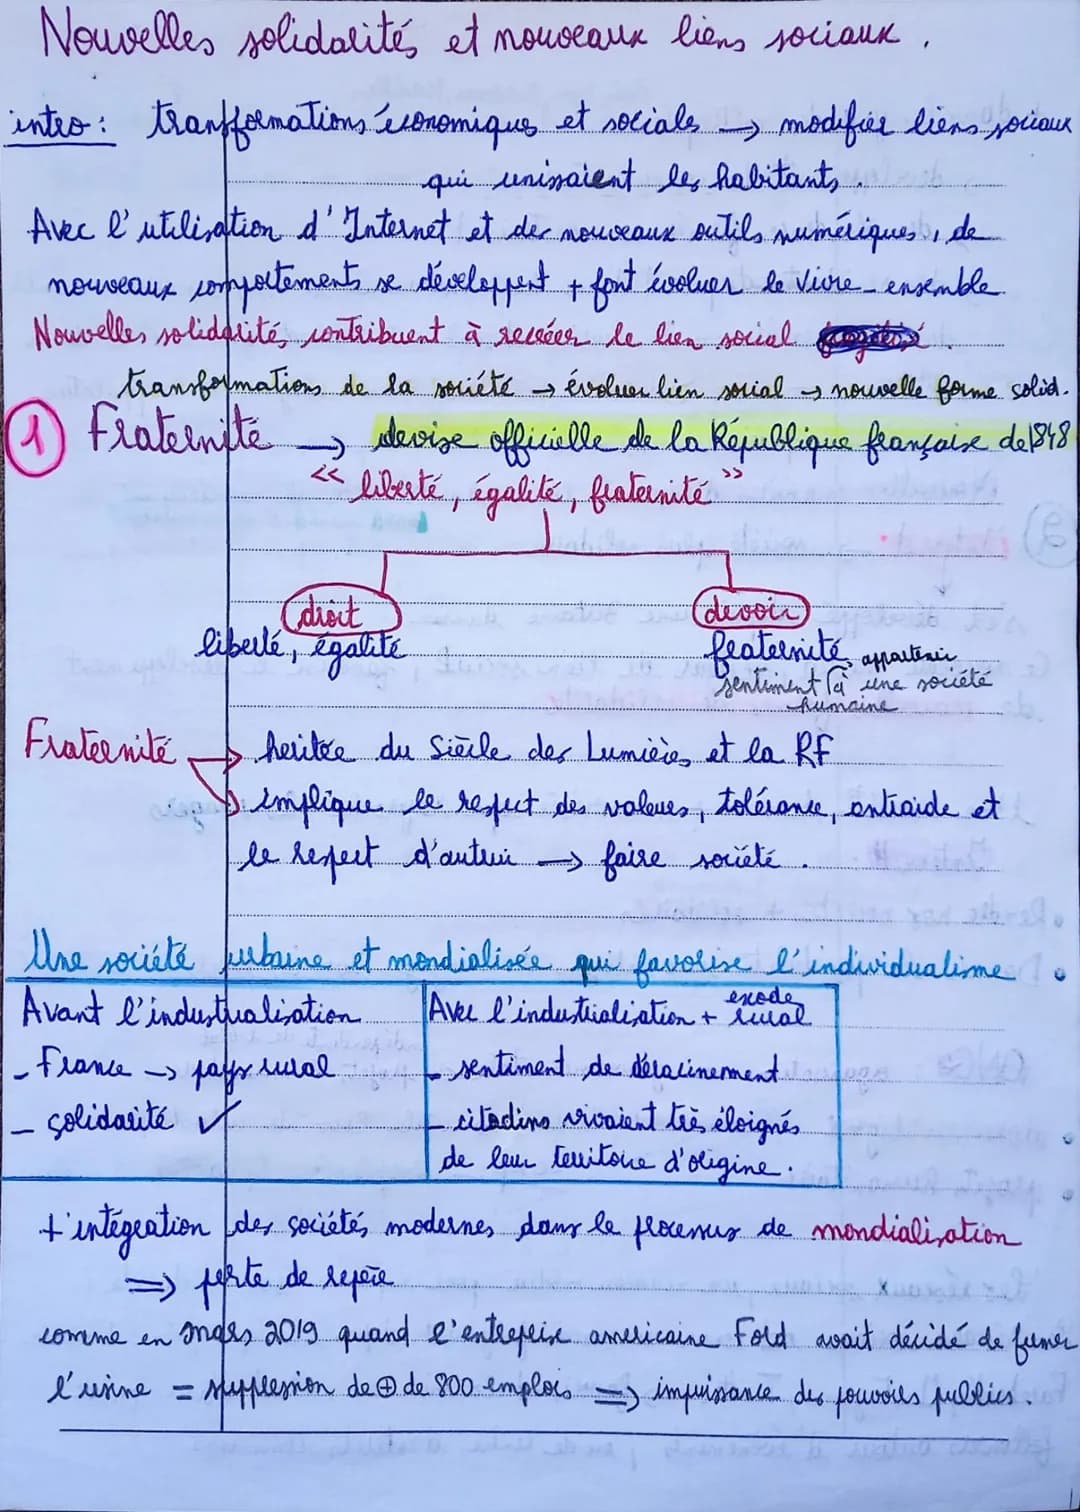 Nouvelles solidarités et nouveaux liens sociaux.
intro: transformations économiques et sociales → modifier liens sociaux
qui unissaient les habitants.
Avec l'utilisation d'Internet et des nouveaux outils numériques, de
nouveaux comportements se développent + font évoluer le vivre-ensemble
Nouvelles solidarités contribuent à recréer le lien social
transformations de la société → évoluer lien social → nouvelle forme solid.
1 Fraternité → devise officielle de la République française de 1848
<< liberté, égalité, fraternité >>
droit devoir
liberté, égalité fraternité
sentiment appartenir à une société
humaine
Fraternité → heritée du Siècle des Lumières et la RF
→ implique le respect des valeurs, tolérance, entraide et
le respect d'autrui → faire société.
Une société urbaine et mondialisée qui favorise l'individualisme
Avant l'industrialisation Avec l'industrialisation + exode rural
- France → pays rural - sentiment de déracinement
- solidarité ✓ - citadins vivaient très éloignés
de leur territoire d'origine.
+ intégration des sociétés modernes dans le processus de mondialisation
⇒ perte de repère
comme en mars 2019 quand l'entreprise americaine Fold avait décidé de fermer
l'usine = suppression de ⊕ de 800 emplois ⇒ impuissance des pouvoirs publics.